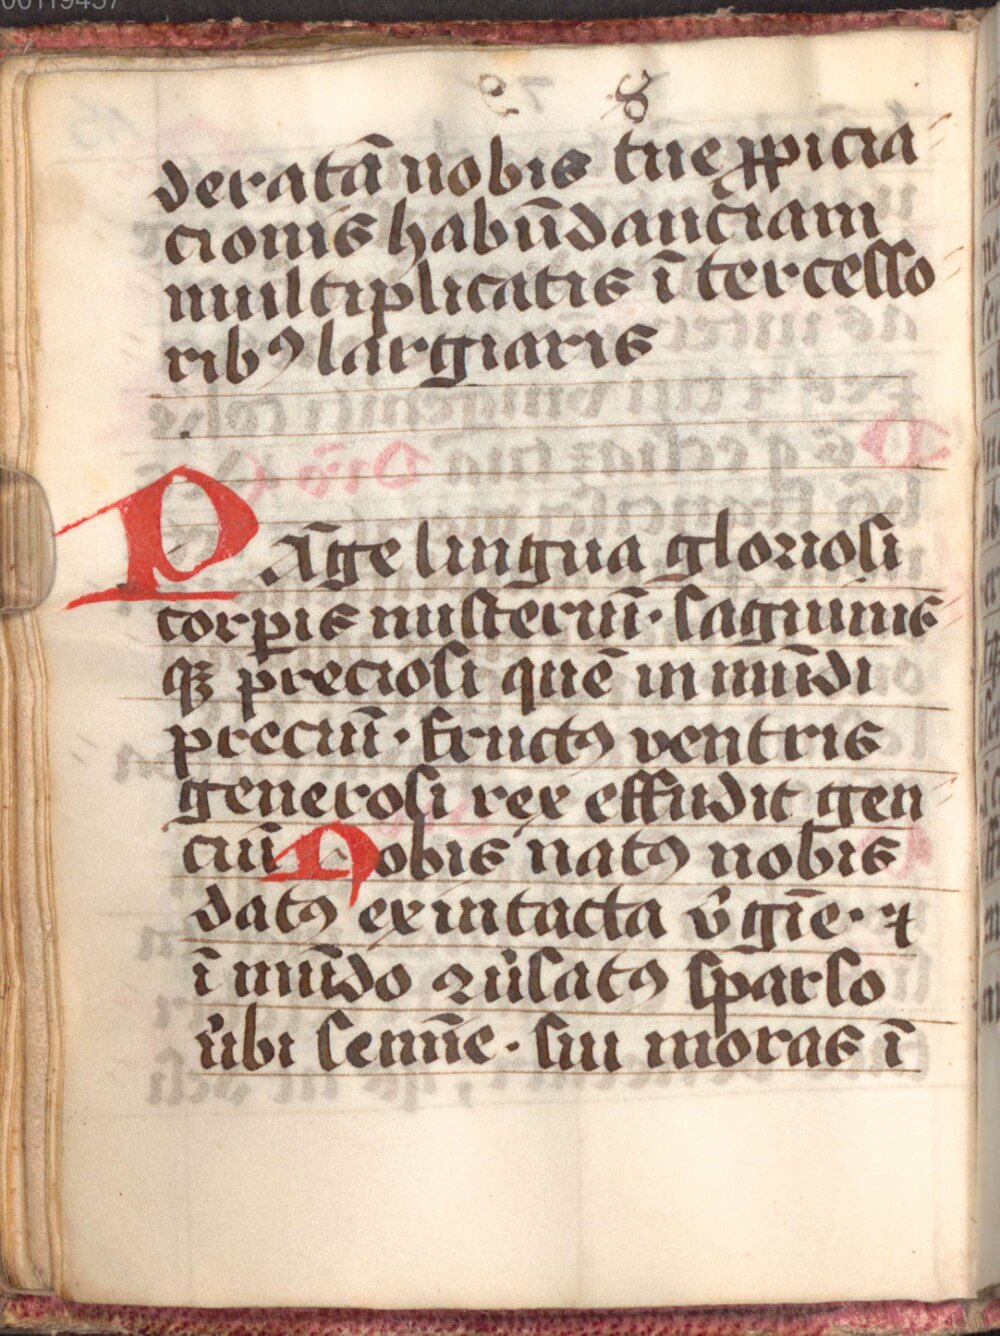 00119457
deratā nobis tue ꝓpicia
cionis habūdanciam
multiplicatis ī tercesso
ribꝯ largiaris
PAn̄ge lingua gloriosi
corꝑis misteriū · sagwinis
qꝫ preciosi quē in mūdi
preciū · fructꝯ ventris
generosi rex effudit gen
ciū Nobis natꝯ nobis
datꝯ ex intacta v̾gīe · ⁊
ī mūdo ꝯu̾satꝯ sparso
u̾bi semīe · sui moras ī